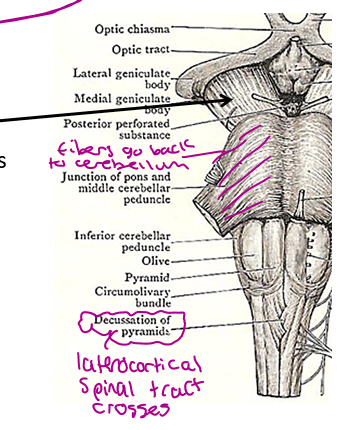 Optic chiasma
Optic tract
Lateral geniculate
body
Medial geniculate
body
Posterior perforated
substance
fibers go back
to cerebellum
s
Junction of pons and
middle cerebellar
peduncle
Inferior cerebellar
peduncle
Olive
Pyramid
Circumolivary
bundle
Decussation of
pyramids
laterocortical
spinal tract
crosses